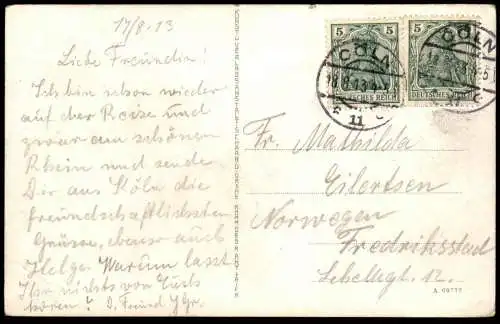 17/8-13
Liebe Freundin!
Ich bin schon wieder
auf der Reise und
zwar am schönen
Rhein und sende
Dir aus Köln die
freundschaftlichsten
Grüsse, ebenso auch
Helge. Warum lasst
Ihr nichts von Euch
hören? D. Freund
5 5
DEUTSCHES REICH
5 5
DEUTSCHES REICH
CÖLN
11
CÖLN
Fr. Mathilda
Eilertsen
Norwegen
Fredrikstad
12.